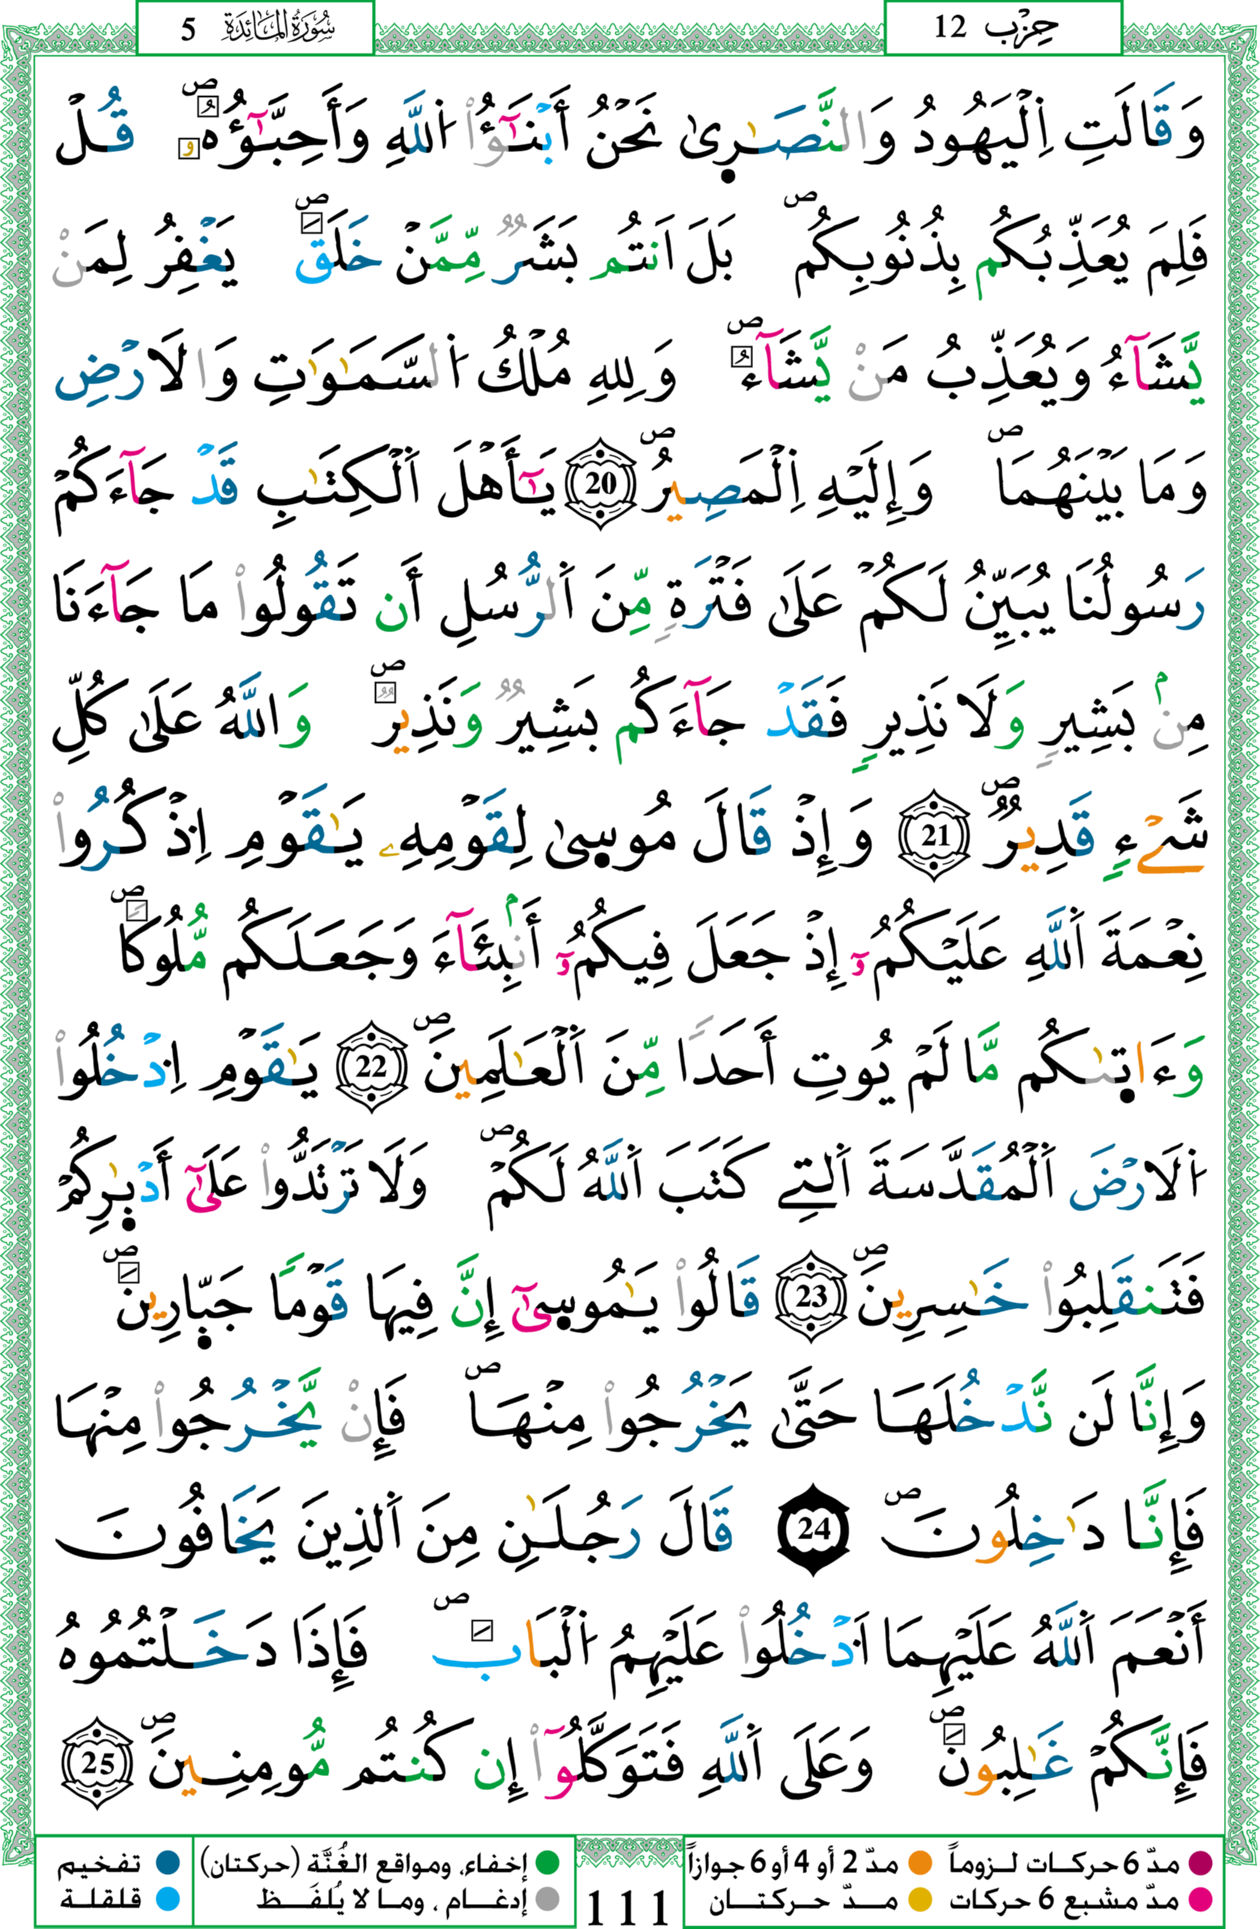 حِزْب 12
سُورَةُ الْمَائِدَة 5
وَقَالَتِ اِ۬لْيَهُودُ وَالنَّصَٰر۪ىٰ نَحْنُ أَبْنَٰٓؤُاْ اُ۬للَّهِ وَأَحِبَّٰٓؤُهُۥۖ قُلْ
فَلِمَ يُعَذِّبُكُم بِذُنُوبِكُمۖ بَلَ اَنتُم بَشَرٞ مِّمَّنْ خَلَقَۖ يَغْفِرُ لِمَنْ
يَّشَآءُ وَيُعَذِّبُ مَنْ يَّشَآءُۖ وَلِلهِ مُلْكُ اُ۬لسَّمَٰوَٰتِ وَالَارْضِ
وَمَا بَيْنَهُمَاۖ وَإِلَيْهِ اِ۬لْمَصِيرُۖ 20 يَٰٓأَهْلَ اَ۬لْكِتَٰبِ قَدْ جَآءَكُمْ
رَسُولُنَا يُبَيِّنُ لَكُمْ عَلَىٰ فَتْرَةٖ مِّنَ اَ۬لرُّسُلِ أَن تَقُولُواْ مَا جَآءَنَا
مِنۢ بَشِيرٖ وَلَا نَذِيرٖ فَقَدْ جَآءَكُم بَشِيرٞ وَنَذِيرٞۖ وَاللَّهُ عَلَىٰ كُلِّ
شَےْءٖ قَدِيرٞۖ 21 وَإِذْ قَالَ مُوس۪ىٰ لِقَوْمِهِۦ يَٰقَوْمِ اِ۟ذْكُرُواْ
نِعْمَةَ اَ۬للَّهِ عَلَيْكُمُۥٓ إِذْ جَعَلَ فِيكُمُۥٓ أَنۢبِئَآءَ وَجَعَلَكُم مُّلُوكاٗۖ
وَءَات۪ىٰكُم مَّا لَمْ يُوتِ أَحَداٗ مِّنَ اَ۬لْعَٰلَمِينَۖ 22 يَٰقَوْمِ اِ۟دْخُلُواْ
اُ۬لَارْضَ اَ۬لْمُقَدَّسَةَ اَ۬لتِے كَتَبَ اَ۬للَّهُ لَكُمْۖ وَلَا تَرْتَدُّواْ عَلَىٰٓ أَدْبٰ۪رِكُمْ
فَتَنقَلِبُواْ خَٰسِرِينَۖ 23 قَالُواْ يَٰمُوس۪ىٰٓ إِنَّ فِيهَا قَوْماٗ جَبّ۪ارِينَۖ
وَإِنَّا لَن نَّدْخُلَهَا حَتَّىٰ يَخْرُجُواْ مِنْهَاۖ فَإِنْ يَّخْرُجُواْ مِنْهَا
فَإِنَّا دَٰخِلُونَۖ 24 قَالَ رَجُلَٰنِ مِنَ اَ۬لذِينَ يَخَافُونَ
أَنْعَمَ اَ۬للَّهُ عَلَيْهِمَا اَ۟دْخُلُواْ عَلَيْهِمُ اُ۬لْبَابَۖ فَإِذَا دَخَلْتُمُوهُ
فَإِنَّكُمْ غَٰلِبُونَۖ وَعَلَى اَ۬للَّهِ فَتَوَكَّلُوٓاْ إِن كُنتُم مُّومِنِينَۖ 25
مدّ 6 حركات لـزوماً
مدّ 2 أو 4 أو 6 جوازاً
إخفاء، ومواقع الغُنَّة (حركتان)
تفخيم
مدّ مشبع 6 حركات
مـدّ حـركتــان
إدغـام ، ومـا لا يُلفَـظ
قلقلة
111